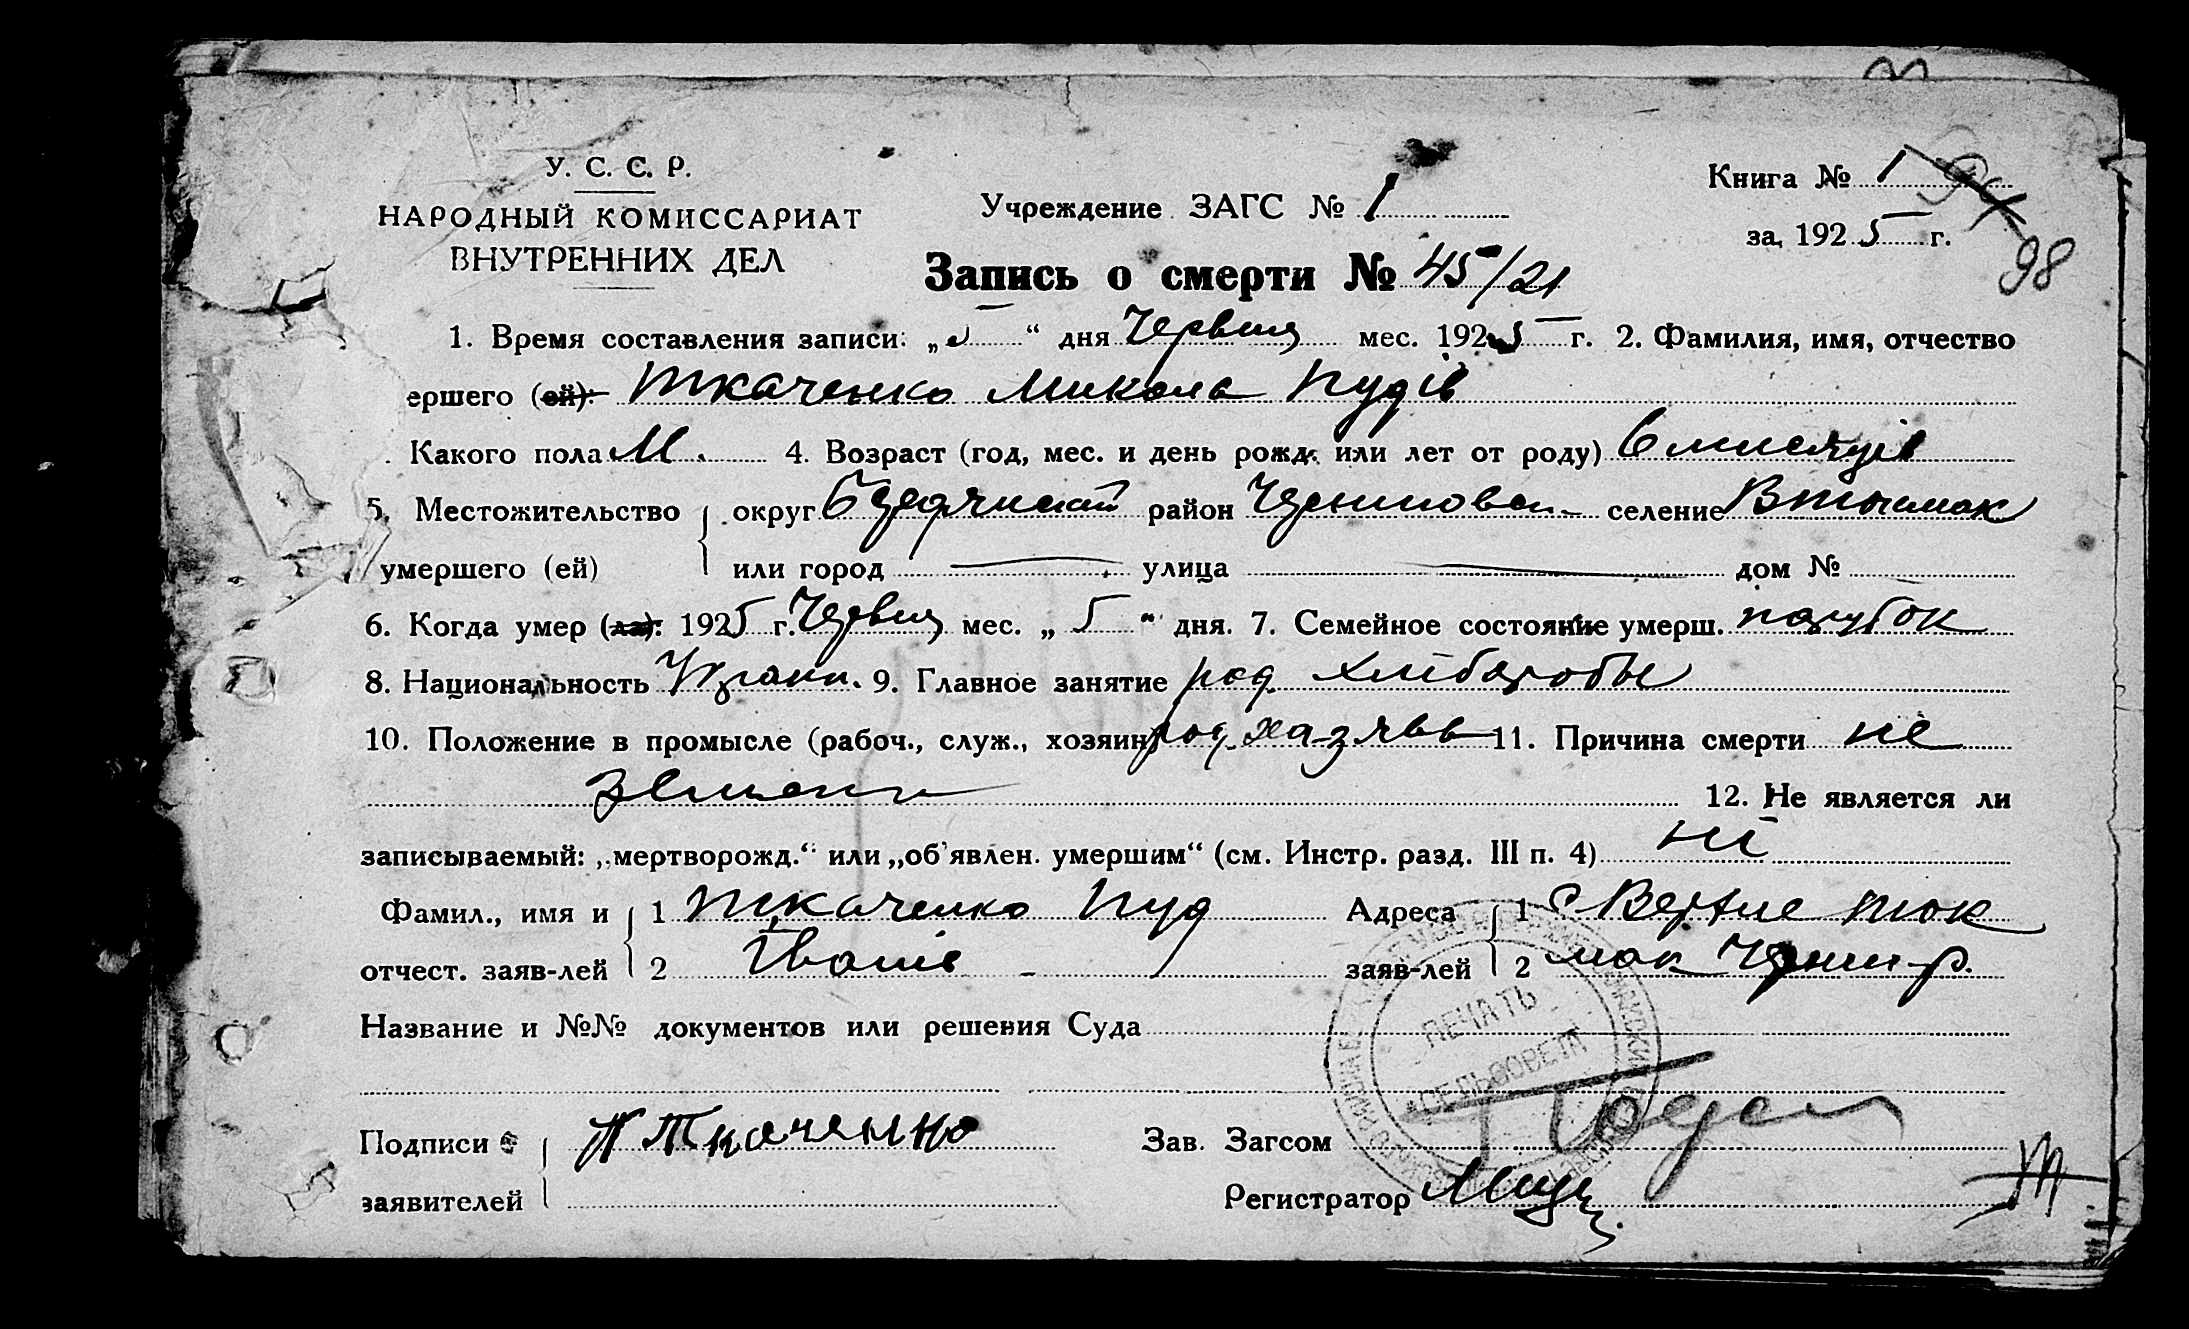 У. С. С. Р.
НАРОДНЫЙ КОМИССАРИАТ
ВНУТРЕННИХ ДЕЛ
Учреждение ЗАГС № 1
Книга № 1 94
за 1925 г.
98
Запись о смерти № 45/21
1. Время составления записи: „5“ дня Червця мес. 1925 г. 2. Фамилия, имя, отчество
ершего (ей): Ткаченко Микола Пудів
Какого пола М. 4. Возраст (год, мес. и день рожд. или лет от роду) 6 мисяців
5. Местожительство округ район селение ВТокмак
умершего (ей) или город — улица — дом №
6. Когда умер (ла): 1925 г. Червця мес. „5“ дня. 7. Семейное состояние умерш. парубок
8. Национальность Украин. 9. Главное занятие род. хлибороби
10. Положение в промысле (рабоч., служ., хозяин) род. хазяев 11. Причина смерти не
12. Не является ли
записываемый: „мертворожд.“ или „об'явлен. умершим“ (см. Инстр. разд. III п. 4) ні
Фамил., имя и 1 Ткаченко Пуд Адреса 1 с Верхне Ток
отчест. заяв-лей 2 Іванів заяв-лей 2 мак р.
Название и №№ документов или решения Суда
ПЕЧАТЬ
СЕЛЬСОВЕТА
Подписи П Ткаченко Зав. Загсом
заявителей Регистратор